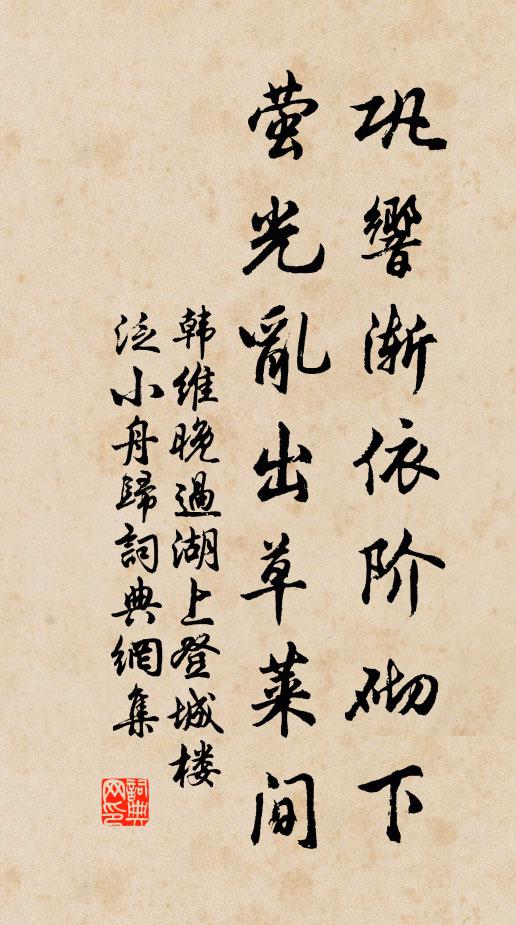 巩響渐依阶砌下
萤光亂出草莱间
韩維晚過湖上登城楼
泛小舟歸詞典網集
詞典
网印